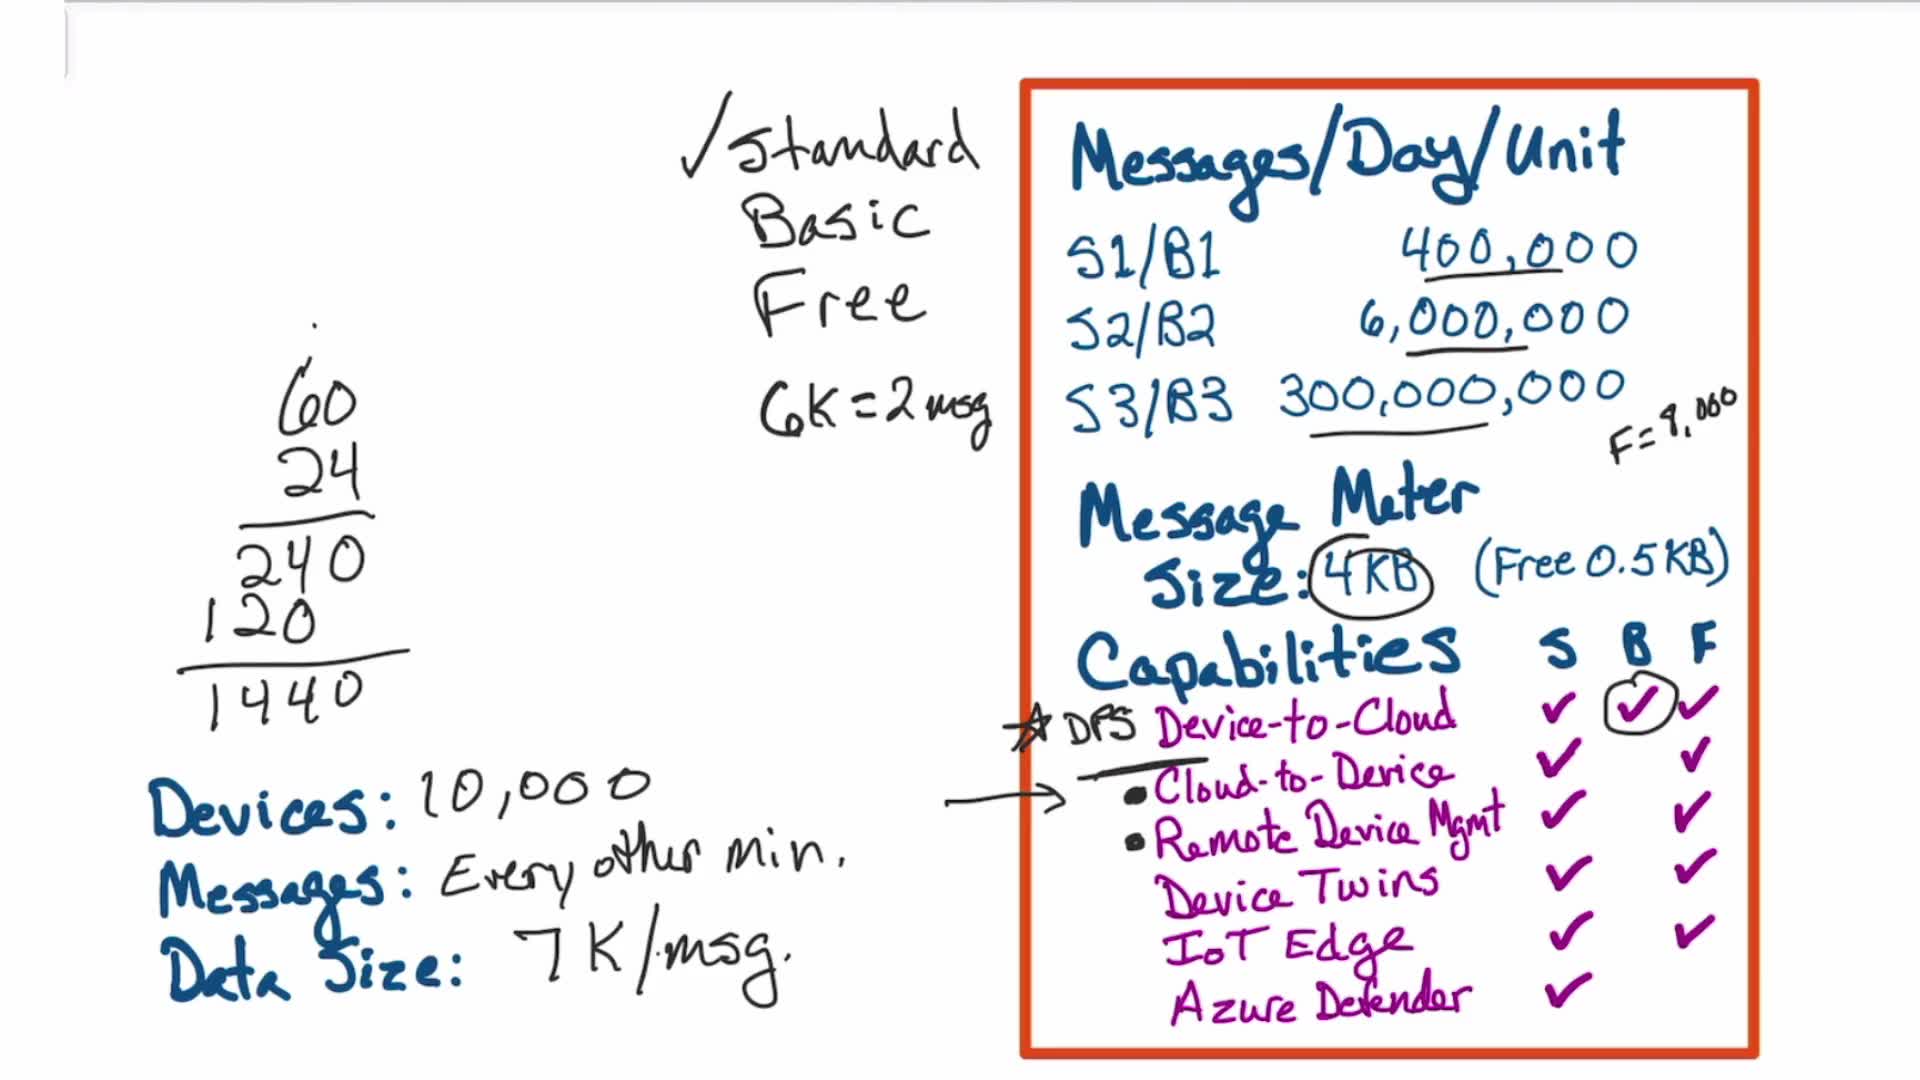 ✓ Standard
Basic
Free
6K = 2 msg
60
24
240
120
1440
Devices: 10,000
Messages: Every other min.
Data Size: 7K/msg.
Messages/Day/Unit
S1/B1 400,000
S2/B2 6,000,000
S3/B3 300,000,000
F = 8,000
Message Meter
Size: 4KB (Free 0.5KB)
Capabilities S B F
★ DPS Device-to-Cloud ✓ ✓ ✓
→ • Cloud-to-Device ✓ ✓
• Remote Device Mgmt ✓ ✓
Device Twins ✓ ✓
IoT Edge ✓ ✓
Azure Defender ✓